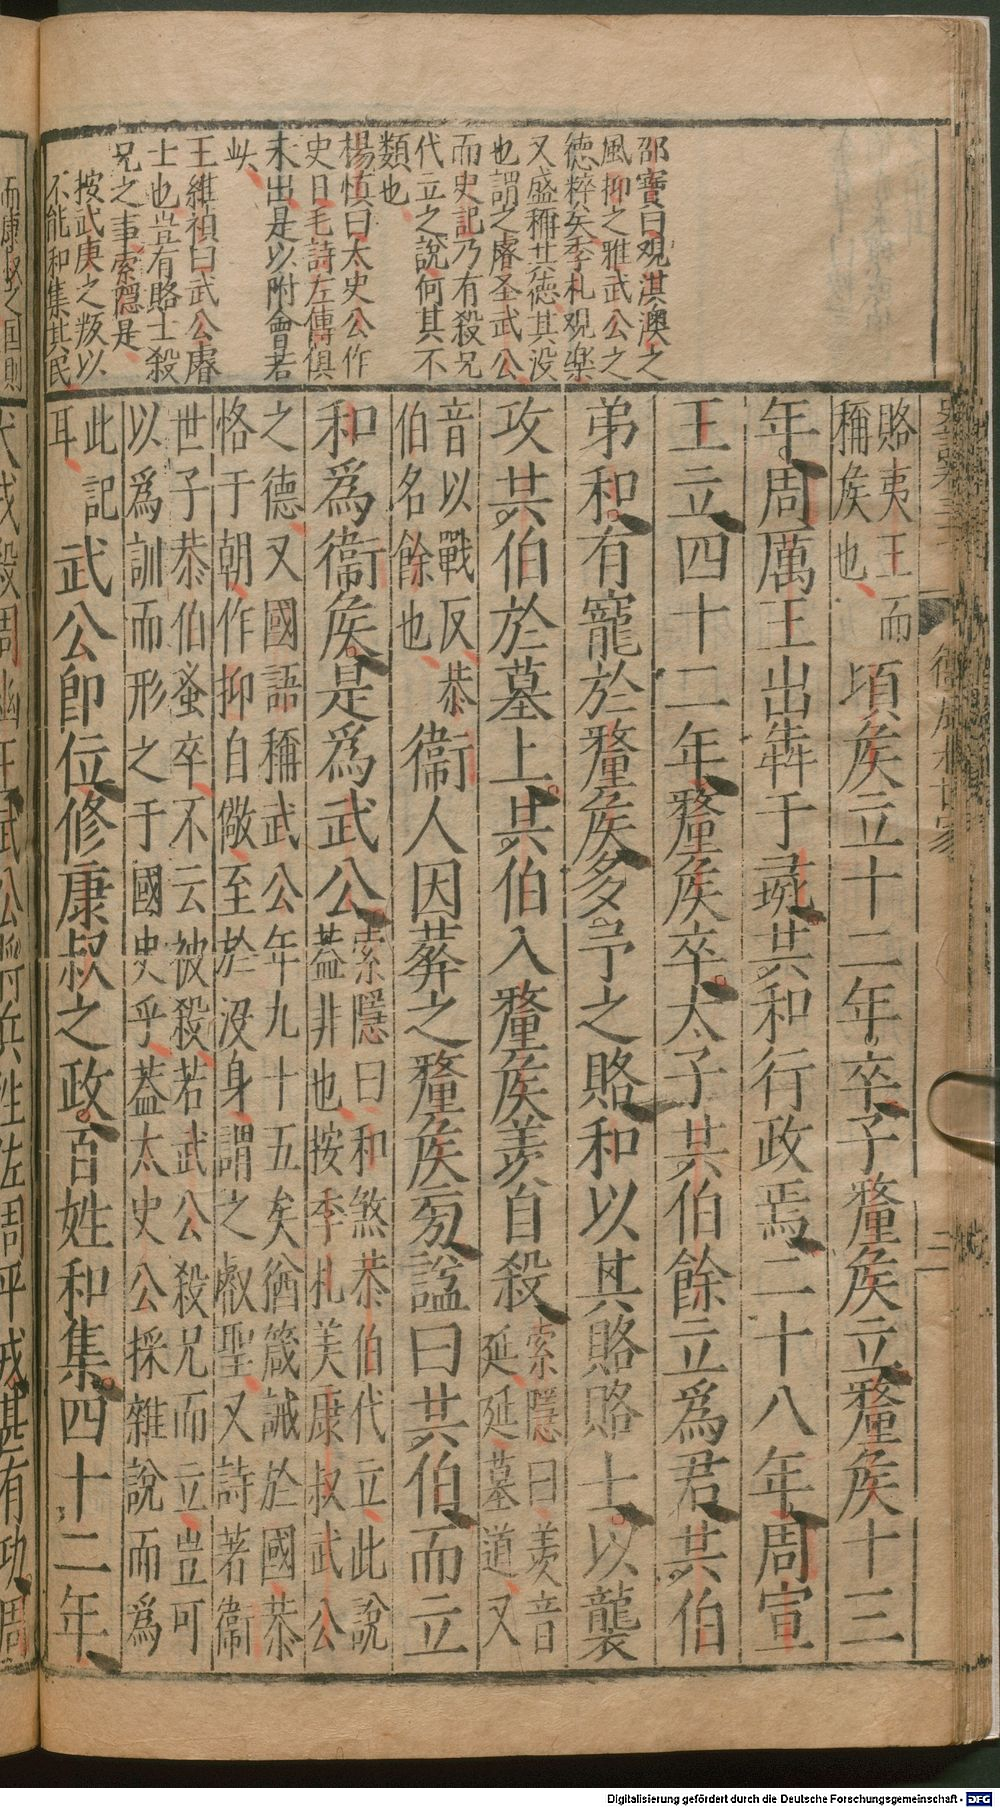 邵寶曰觀淇澳之
風抑之雅武公之
德粹矣季札观楽
又盛稱其德其没
也謂之睿圣武公
而史記乃有殺兄
代立之說何其不
類也
楊慎曰太史公作
史日毛詩左傳俱
未出是以附會若
此
王維禎曰武公睿
士也豈有賂士殺
兄之事索隱是
按武庚之叛以
不能和集其民
賂夷王而
稱矦也
頃矦立十二年卒子釐矦立釐矦十三
年周厲王出犇于彘共和行政焉二十八年周宣
王立四十二年釐矦卒太子共伯餘立爲君共伯
弟和有寵於釐矦多予之賂和以其賂賂士以襲
攻共伯於墓上共伯入釐矦羨自殺
索隱曰羨音
延延墓道又
音以戰反恭
伯名餘也
衞人因葬之釐矦旁謚曰共伯而立
和爲衞矦是爲武公
索隱曰和煞恭伯代立此說
葢非也按季札美康叔武公
之德又國語稱武公年九十五矣猶箴誡於國恭
恪于朝作抑自儆至於没身謂之叡聖又詩著衞
世子恭伯蚤卒不云被殺若武公殺兄而立豈可
以爲訓而形之于國史乎葢太史公採雜說而爲
此記
耳
武公卽位修康叔之政百姓和集四十二年
而康叔之国則
犬戎殺周幽王武公將兵往佐周平戎甚有功周
衞康叔世家
二
Digitalisierung gefördert durch die Deutsche Forschungsgemeinschaft - DFG